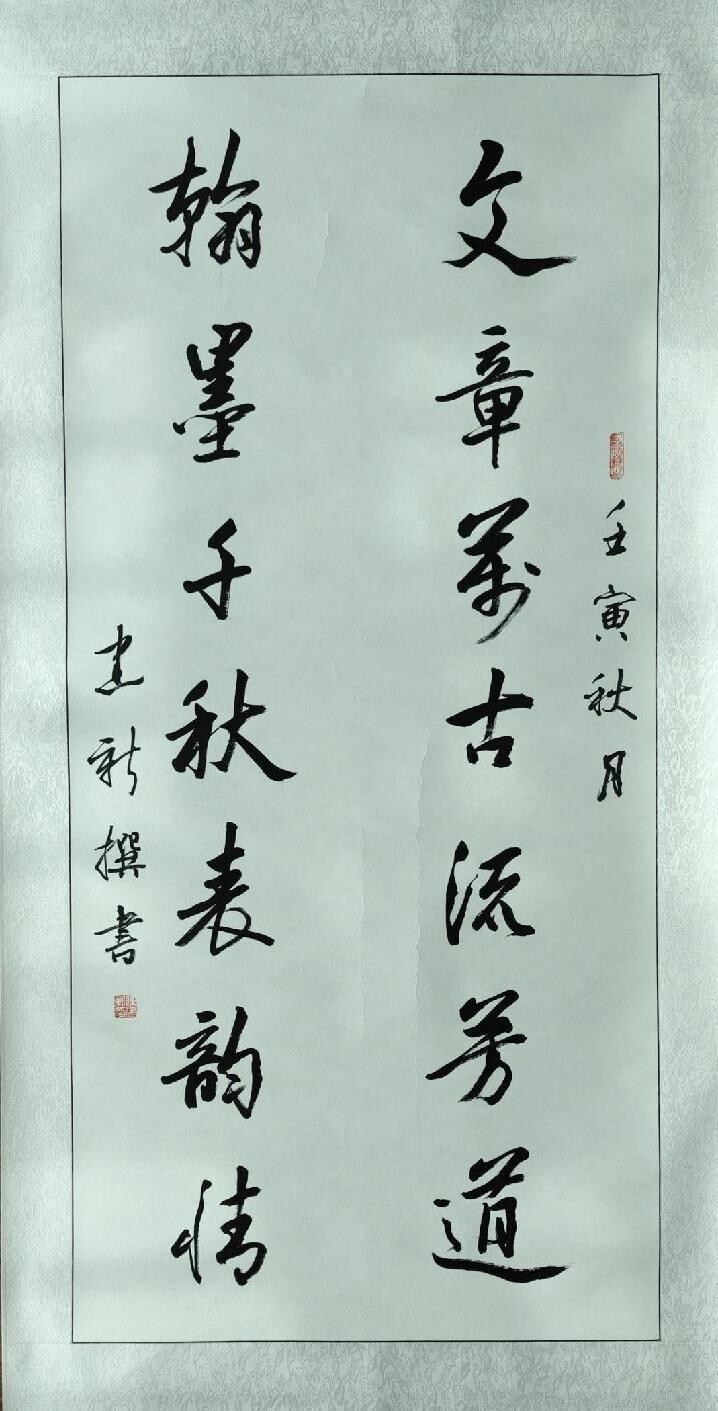 壬寅秋月
文章萬古流芳道
翰墨千秋表韵情
建新撰書